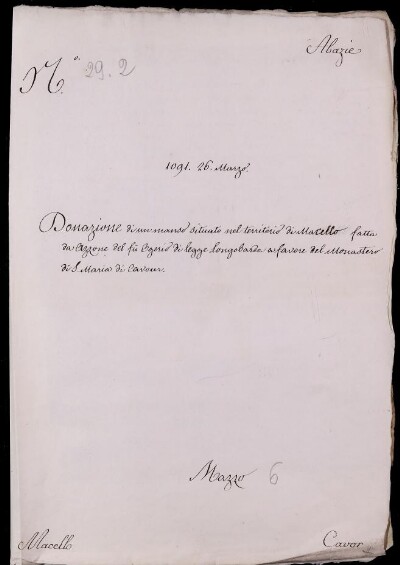 Abazie
N.° 29.2
1091. 26. Marzo.
Donazione di un manso situato nel territorio di Macello fatta
da Azzone del fù Ogerio di legge longobarda a favore del Monastero
di S. Maria di Cavour.
Mazzo 6
Macello
Cavor